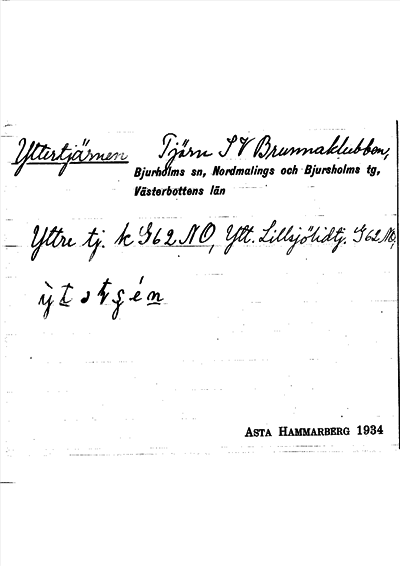 Yttertjärnen Tjärn SV Brunnaklubben,
Bjurholms sn, Nordmalings och Bjursholms tg,
Västerbottens län
Yttre tj. k G62 NO, Ytt. Lillsjölidtj. G62 NO,
ASTA HAMMARBERG 1934